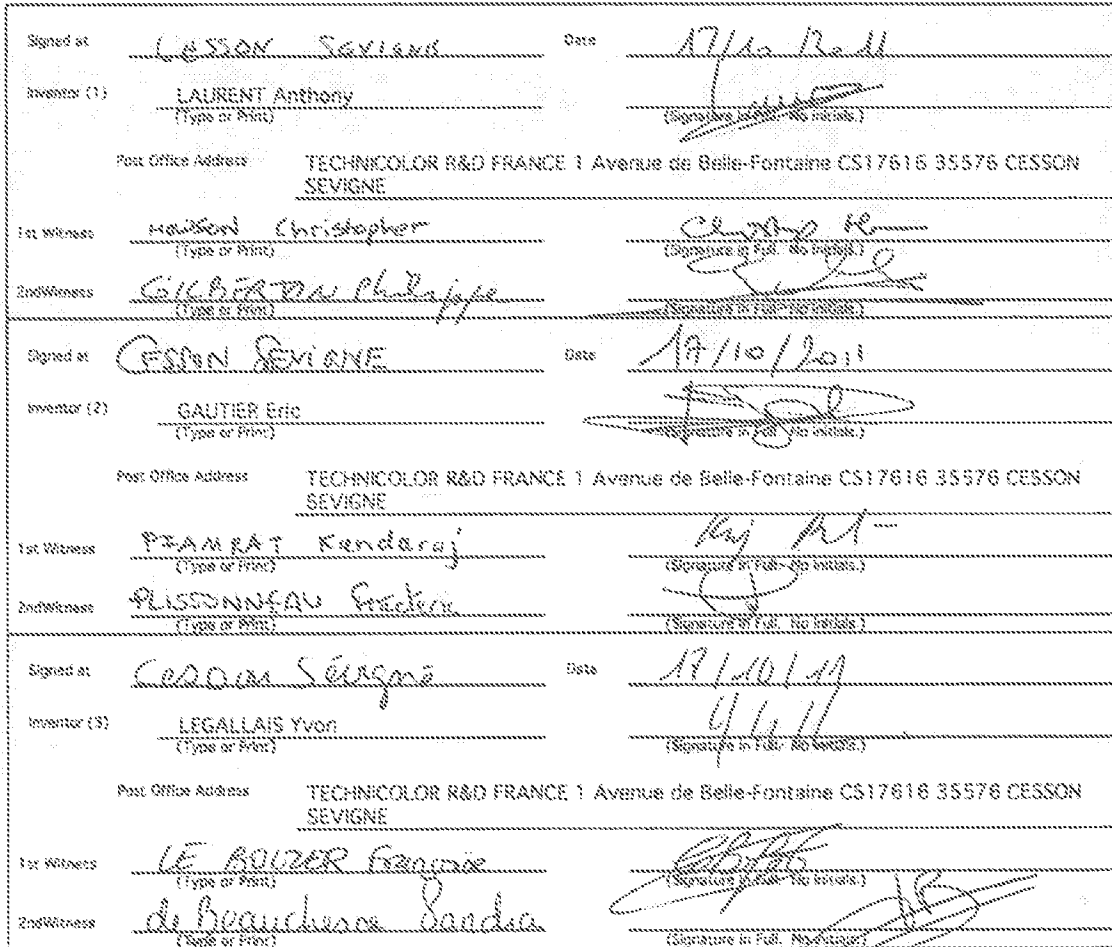 Signed at CESSON SEVIGNE Date 17/10/2011
Inventor (1) LAURENT Anthony
(Type or Print) (Signature in Full. No initials.)
Post Office Address TECHNICOLOR R&D FRANCE 1 Avenue de Belle-Fontaine CS17616 35576 CESSON
SEVIGNE
1st Witness HOWSON Christopher
(Type or Print) (Signature in Full. No initials.)
2nd Witness GILBERTON Philippe
(Type or Print) (Signature in Full. No initials.)
Signed at CESSON SEVIGNE Date 17/10/2011
Inventor (2) GAUTIER Eric
(Type or Print) (Signature in Full. No initials.)
Post Office Address TECHNICOLOR R&D FRANCE 1 Avenue de Belle-Fontaine CS17616 35576 CESSON
SEVIGNE
1st Witness PIAMRAT Kandaraj
(Type or Print) (Signature in Full. No initials.)
2nd Witness PLISSONNEAU Frederic
(Type or Print) (Signature in Full. No initials.)
Signed at Cesson Sévigné Date 17/10/11
Inventor (3) LEGALLAIS Yvon
(Type or Print) (Signature in Full. No initials.)
Post Office Address TECHNICOLOR R&D FRANCE 1 Avenue de Belle-Fontaine CS17616 35576 CESSON
SEVIGNE
1st Witness LE ROUZER Françoise
(Type or Print) (Signature in Full. No initials.)
2nd Witness de Beauchesne Sandra
(Type or Print) (Signature in Full. No initials.)